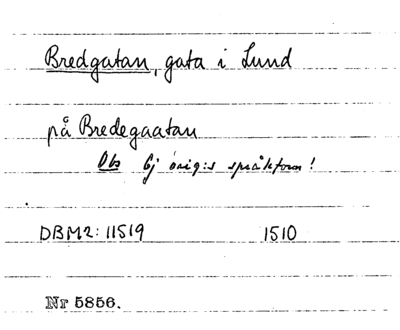 Bredgatan, gata i Lund
på Bredegaatan
Obs Ej orig:s språkform!
DBM2: 11519 1510
Nr 5856.